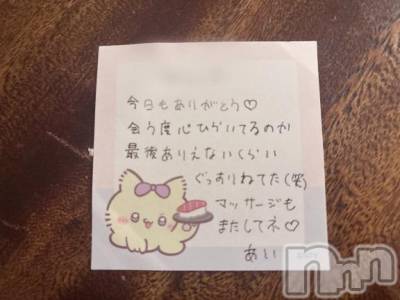 今日もありがとう♡
会う度心ひらいてるのか
最後ありえないくらい
ぐっすりねてた(笑)
マッサージも
またしてネ♡
あい